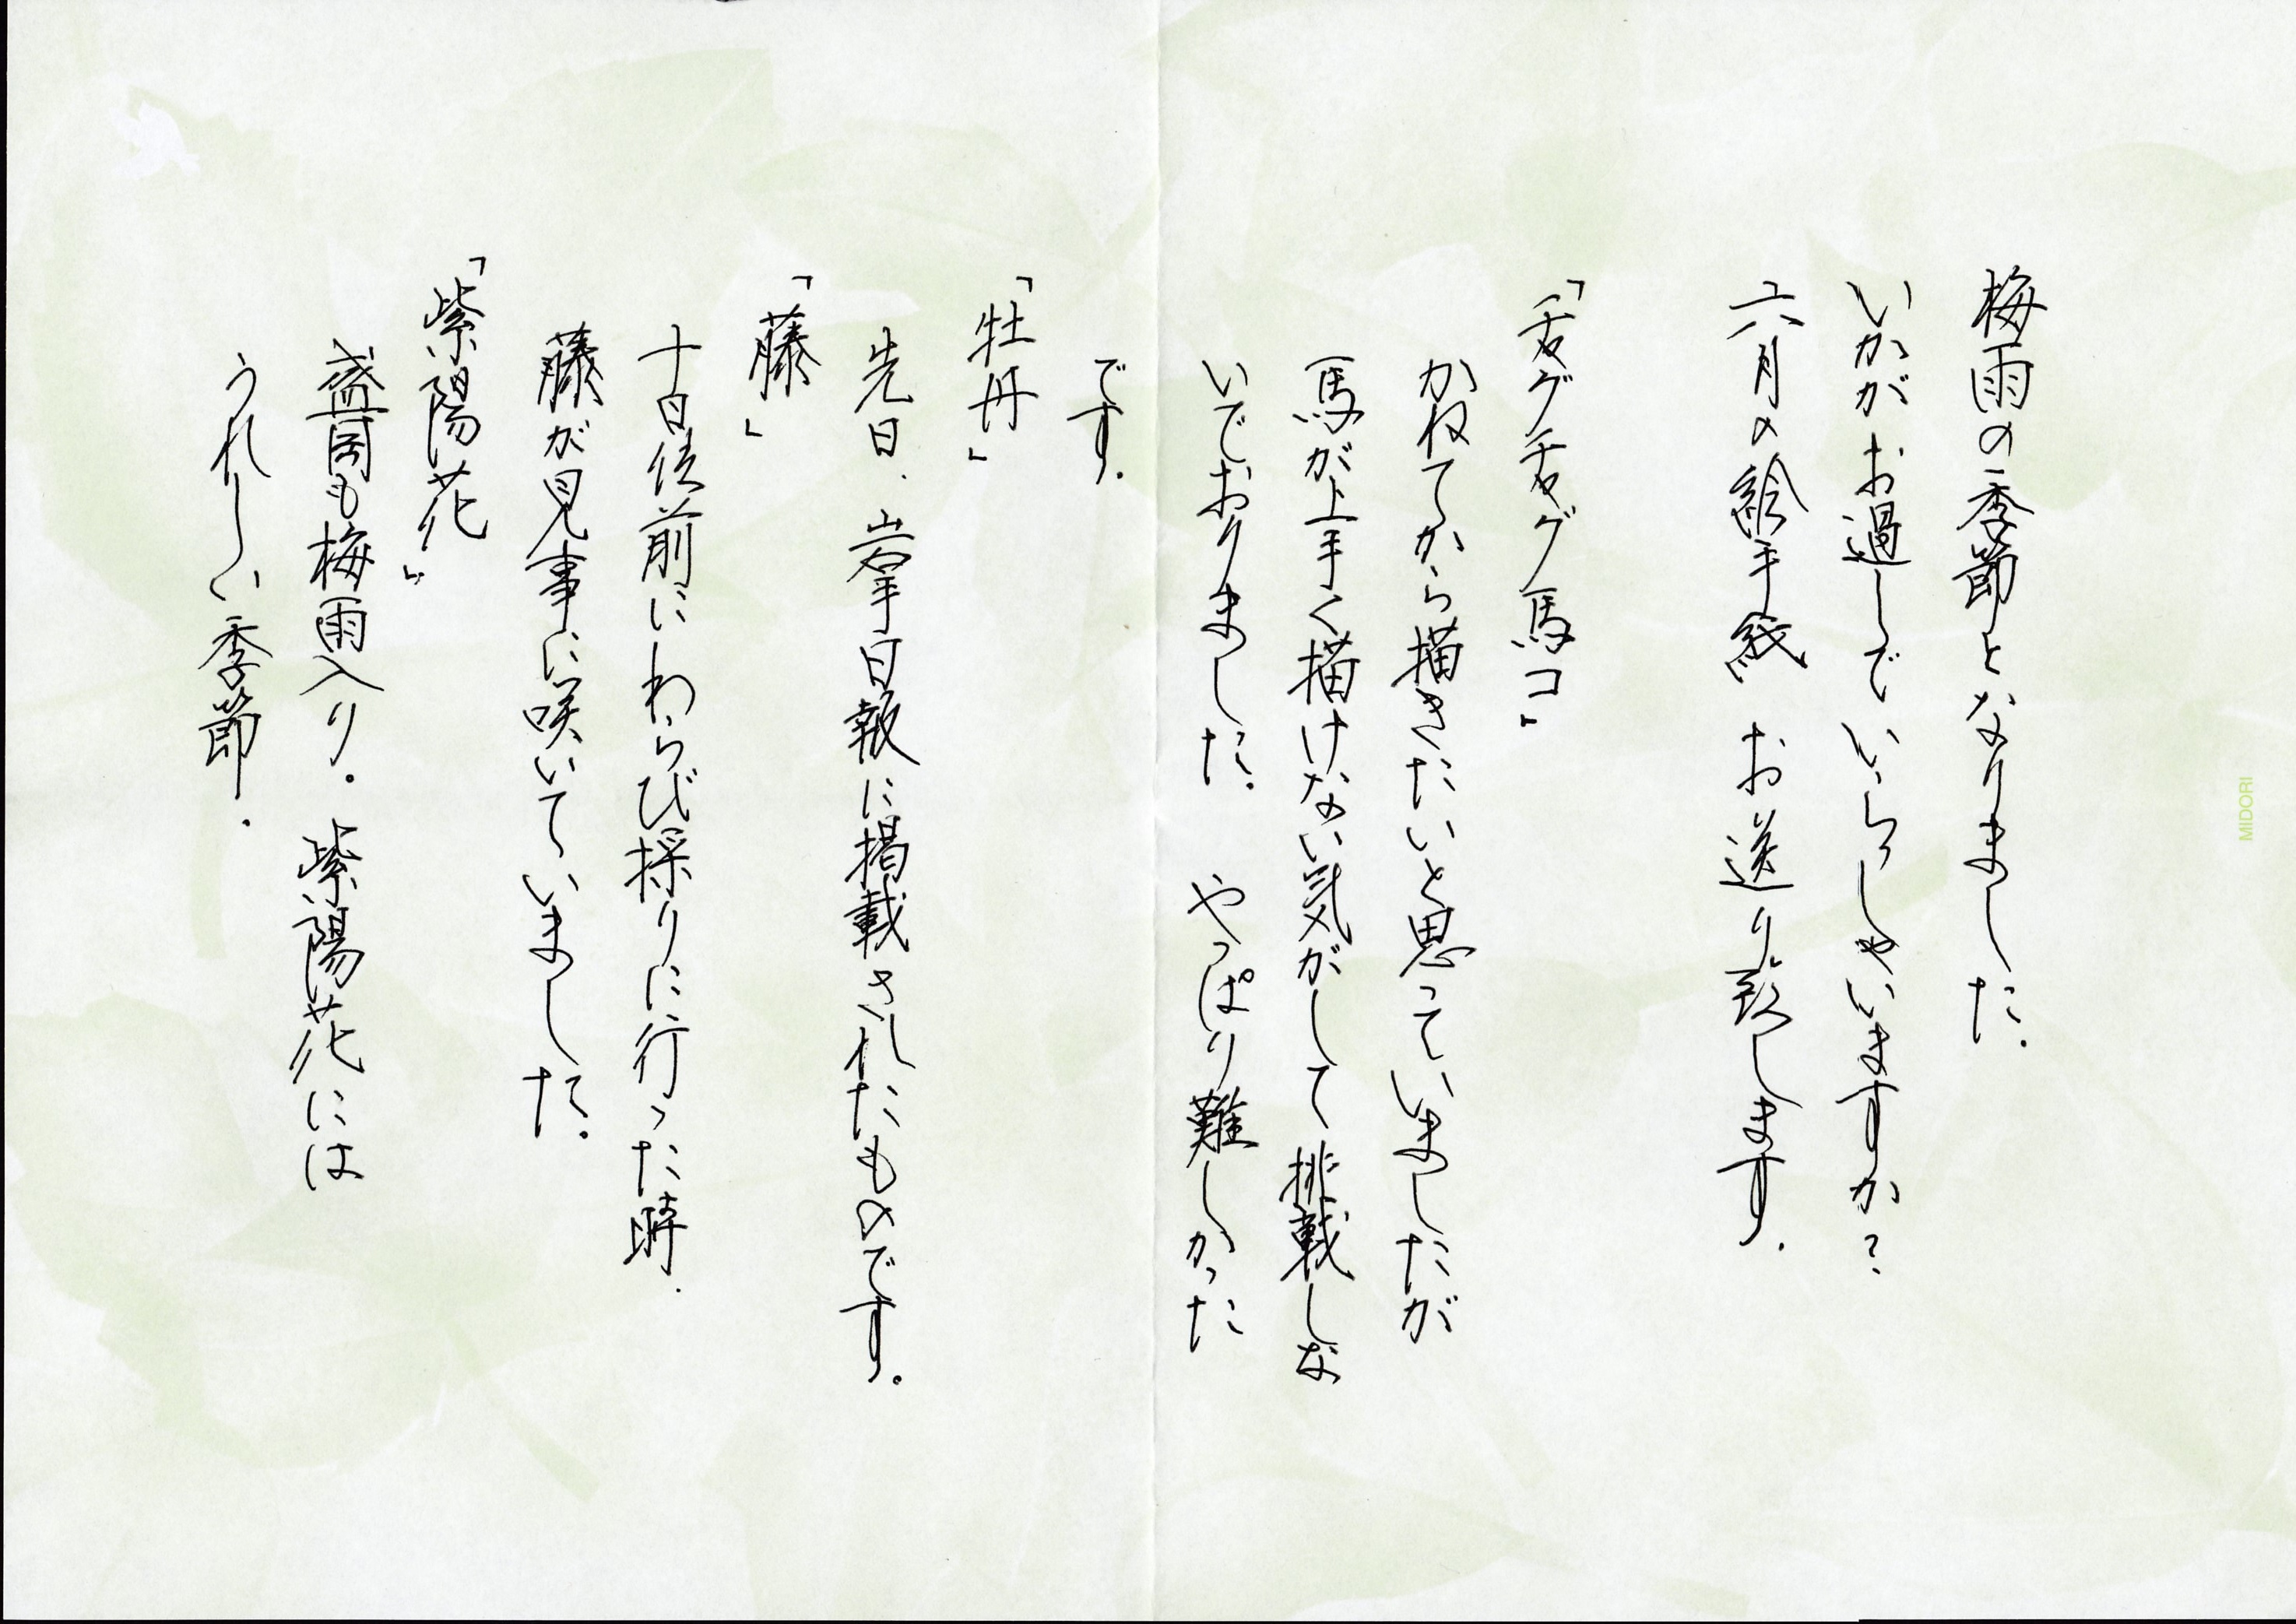 梅雨の季節となりました。
いかがお過しでいらっしゃいますか?
六月の絵手紙 お送り致します.
「チャグチャグ馬コ」
かねてから描きたいと思っていましたが
馬が上手く描けない気がして挑戦しな
いでおりました. やっぱり難しかった
です.
「牡丹」
先日. 岩手日報に掲載されたものです。
「藤」
十日位前にわらび採りに行った時.
藤が見事に咲いていました。
「紫陽花」
盛岡も梅雨入り。紫陽花には
うれしい季節.
MIDORI